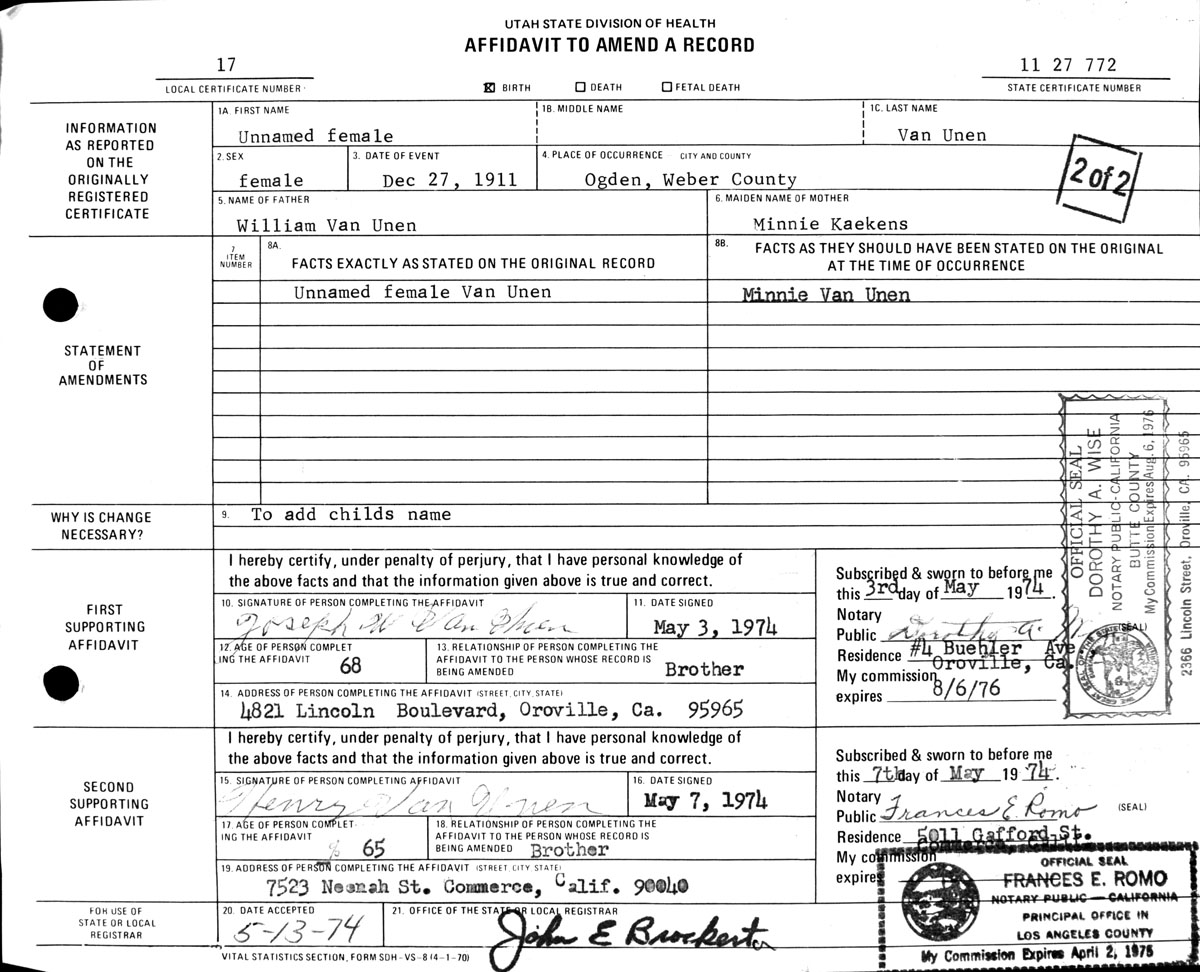 UTAH STATE DIVISION OF HEALTH
AFFIDAVIT TO AMEND A RECORD
17
LOCAL CERTIFICATE NUMBER
☒ BIRTH ☐ DEATH ☐ FETAL DEATH
11 27 772
STATE CERTIFICATE NUMBER
INFORMATION
AS REPORTED
ON THE
ORIGINALLY
REGISTERED
CERTIFICATE
1A. FIRST NAME 1B. MIDDLE NAME 1C. LAST NAME
Unnamed female Van Unen
2. SEX 3. DATE OF EVENT 4. PLACE OF OCCURRENCE CITY AND COUNTY
female Dec 27, 1911 Ogden, Weber County
2 of 2
5. NAME OF FATHER 6. MAIDEN NAME OF MOTHER
William Van Unen Minnie Kaekens
STATEMENT
OF
AMENDMENTS
7
ITEM
NUMBER
8A.
FACTS EXACTLY AS STATED ON THE ORIGINAL RECORD
8B. FACTS AS THEY SHOULD HAVE BEEN STATED ON THE ORIGINAL
AT THE TIME OF OCCURRENCE
Unnamed female Van Unen Minnie Van Unen
WHY IS CHANGE
NECESSARY?
9. To add childs name
FIRST
SUPPORTING
AFFIDAVIT
I hereby certify, under penalty of perjury, that I have personal knowledge of
the above facts and that the information given above is true and correct.
10. SIGNATURE OF PERSON COMPLETING THE AFFIDAVIT 11. DATE SIGNED
Joseph W Van Unen May 3, 1974
12. AGE OF PERSON COMPLET
ING THE AFFIDAVIT 68
13. RELATIONSHIP OF PERSON COMPLETING THE
AFFIDAVIT TO THE PERSON WHOSE RECORD IS
BEING AMENDED Brother
14. ADDRESS OF PERSON COMPLETING THE AFFIDAVIT (STREET, CITY, STATE)
4821 Lincoln Boulevard, Oroville, Ca. 95965
Subscribed & sworn to before me
this 3rd day of May 1974.
Notary
Public Dorothy A. (SEAL)
Residence #4 Buehler Ave
Oroville, Ca.
My commission
expires 8/6/76
OFFICIAL SEAL
DOROTHY A. WISE
NOTARY PUBLIC-CALIFORNIA
BUTTE COUNTY
My Commission Expires Aug. 6, 1976
2366 Lincoln Street, Oroville, CA. 95965
SECOND
SUPPORTING
AFFIDAVIT
I hereby certify, under penalty of perjury, that I have personal knowledge of
the above facts and that the information given above is true and correct.
15. SIGNATURE OF PERSON COMPLETING AFFIDAVIT 16. DATE SIGNED
Henry Van Unen May 7, 1974
17. AGE OF PERSON COMPLET
ING THE AFFIDAVIT 65
18. RELATIONSHIP OF PERSON COMPLETING THE
AFFIDAVIT TO THE PERSON WHOSE RECORD IS
BEING AMENDED Brother
19. ADDRESS OF PERSON COMPLETING THE AFFIDAVIT (STREET, CITY, STATE)
7523 Neenah St. Commerce, Calif. 90040
Subscribed & sworn to before me
this 7th day of May 1974.
Notary
Public Frances E. Romo (SEAL)
Residence 5011 Gafford St.
Commerce,
My commission
expires
OFFICIAL SEAL
FRANCES E. ROMO
NOTARY PUBLIC — CALIFORNIA
PRINCIPAL OFFICE IN
LOS ANGELES COUNTY
My Commission Expires April 2, 1975
FOR USE OF
STATE OR LOCAL
REGISTRAR
20. DATE ACCEPTED 21. OFFICE OF THE STATE OR LOCAL REGISTRAR
5-13-74 John E Brockert
VITAL STATISTICS SECTION, FORM SDH-VS-8 (4-1-70)